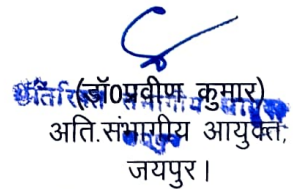 (डॉ0प्रवीण कुमार)
अति.संभागीय आयुक्त,
जयपुर।